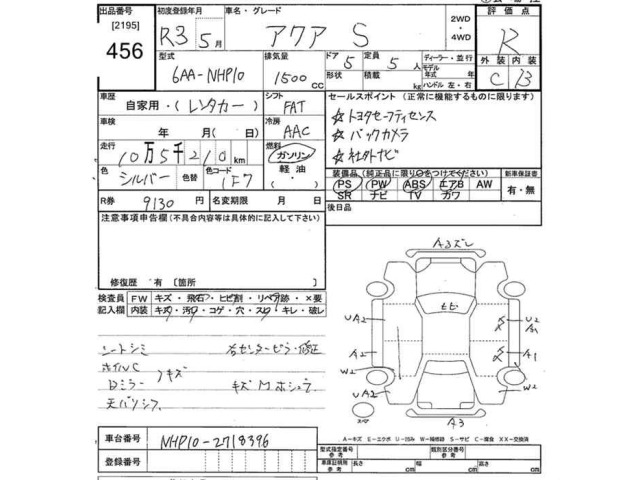 出品番号 初度登録年月 車名・グレード 評価点
[2195] R3 5月 アクア S 2WD ・ 4WD R
456 型式 排気量 ドア 定員 ディーラー・並行 外装 内装
6AA-NHP10 1500 CC 5 5人 モデル 年式 年 C B
形状 積載 kg ハンドル 左・右
車歴 自家用・(レンタカー) シフト FAT セールスポイント (正常に機能するものに限ります)
車検 年 月(日) 冷房 AAC ☆トヨタセーフティセンス
☆バックカメラ
走行 10万5千210km 燃料 ガソリン ☆社外ナビ
色 シルバー 色替 色コード 1F7 軽油 装備品(純正品に限り○をつけてください) 新車保証書
PS PW ABS エアB AW 有・無
SR ナビ TV カワ
R券 9130円 名変期限 月 日 後日品
注意事項申告欄(不具合内容等は具体的に記入して下さい)
修復歴 有 [箇所
検査員 FW キズ・飛石・ヒビ割・リペア跡・×要
記入欄 内装 キズ・汚れ・コゲ・穴・スレ・キレ・破レ
シートシミ 右センターピラー修正
ホイルC
Dミラー キズ キズMホシュウ
A3ズレ
ヒビ
UA2
A2
W2
UA2
A1
W2
A3
A-キズ E-エクボ U-凹み W-補修跡 S-サビ C-腐食 XX-交換済
車台番号 NHP10-2718396 型式指定番号 類別区分番号
登録番号 車庫証明用参考 長さ cm 幅 cm 高さ cm